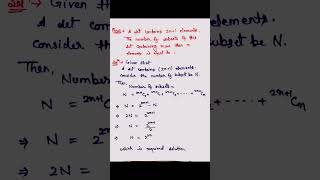 Sol:- Given
elements.
Consider the
subset be N.
Then,
Number
2n+1Cn
Ques:- A set contains 2n+1 elements.
The number of subsets of this
set containing more than n
elements is equal to
Sol:- Given that
A set contains (2n+1) elements.
Consider the number of subset be N.
Then,
Number of subsets =
⇒ N = 2^2n+1 - N
⇒ 2N = 2^2n+1
⇒ N = 2^2n+1 / 2
⇒ N = 2^2n
which is required solution